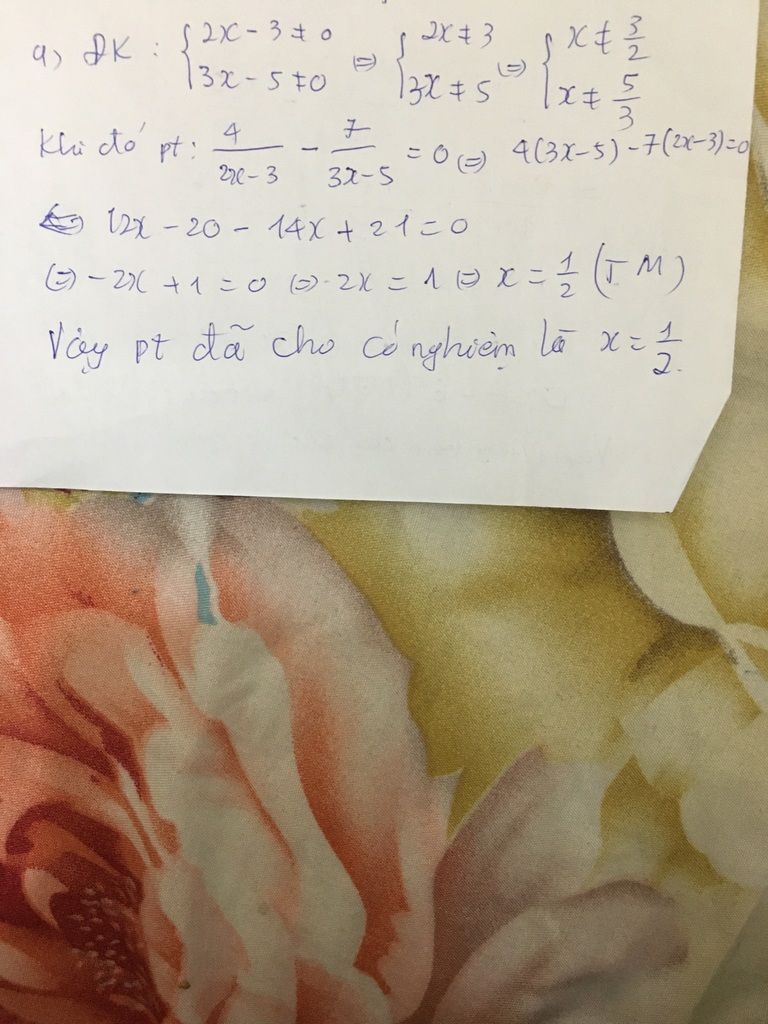 a) ĐK : { 2x - 3 ≠ 0 ; 3x - 5 ≠ 0 ⇔ { 2x ≠ 3 ; 3x ≠ 5 ⇔ { x ≠ 3/2 ; x ≠ 5/3
Khi đó pt: 4/(2x-3) - 7/(3x-5) = 0 ⇔ 4(3x-5) - 7(2x-3) = 0
⇔ 12x - 20 - 14x + 21 = 0
⇔ -2x + 1 = 0 ⇔ 2x = 1 ⇔ x = 1/2 (TM)
Vậy pt đã cho có nghiệm là x = 1/2.